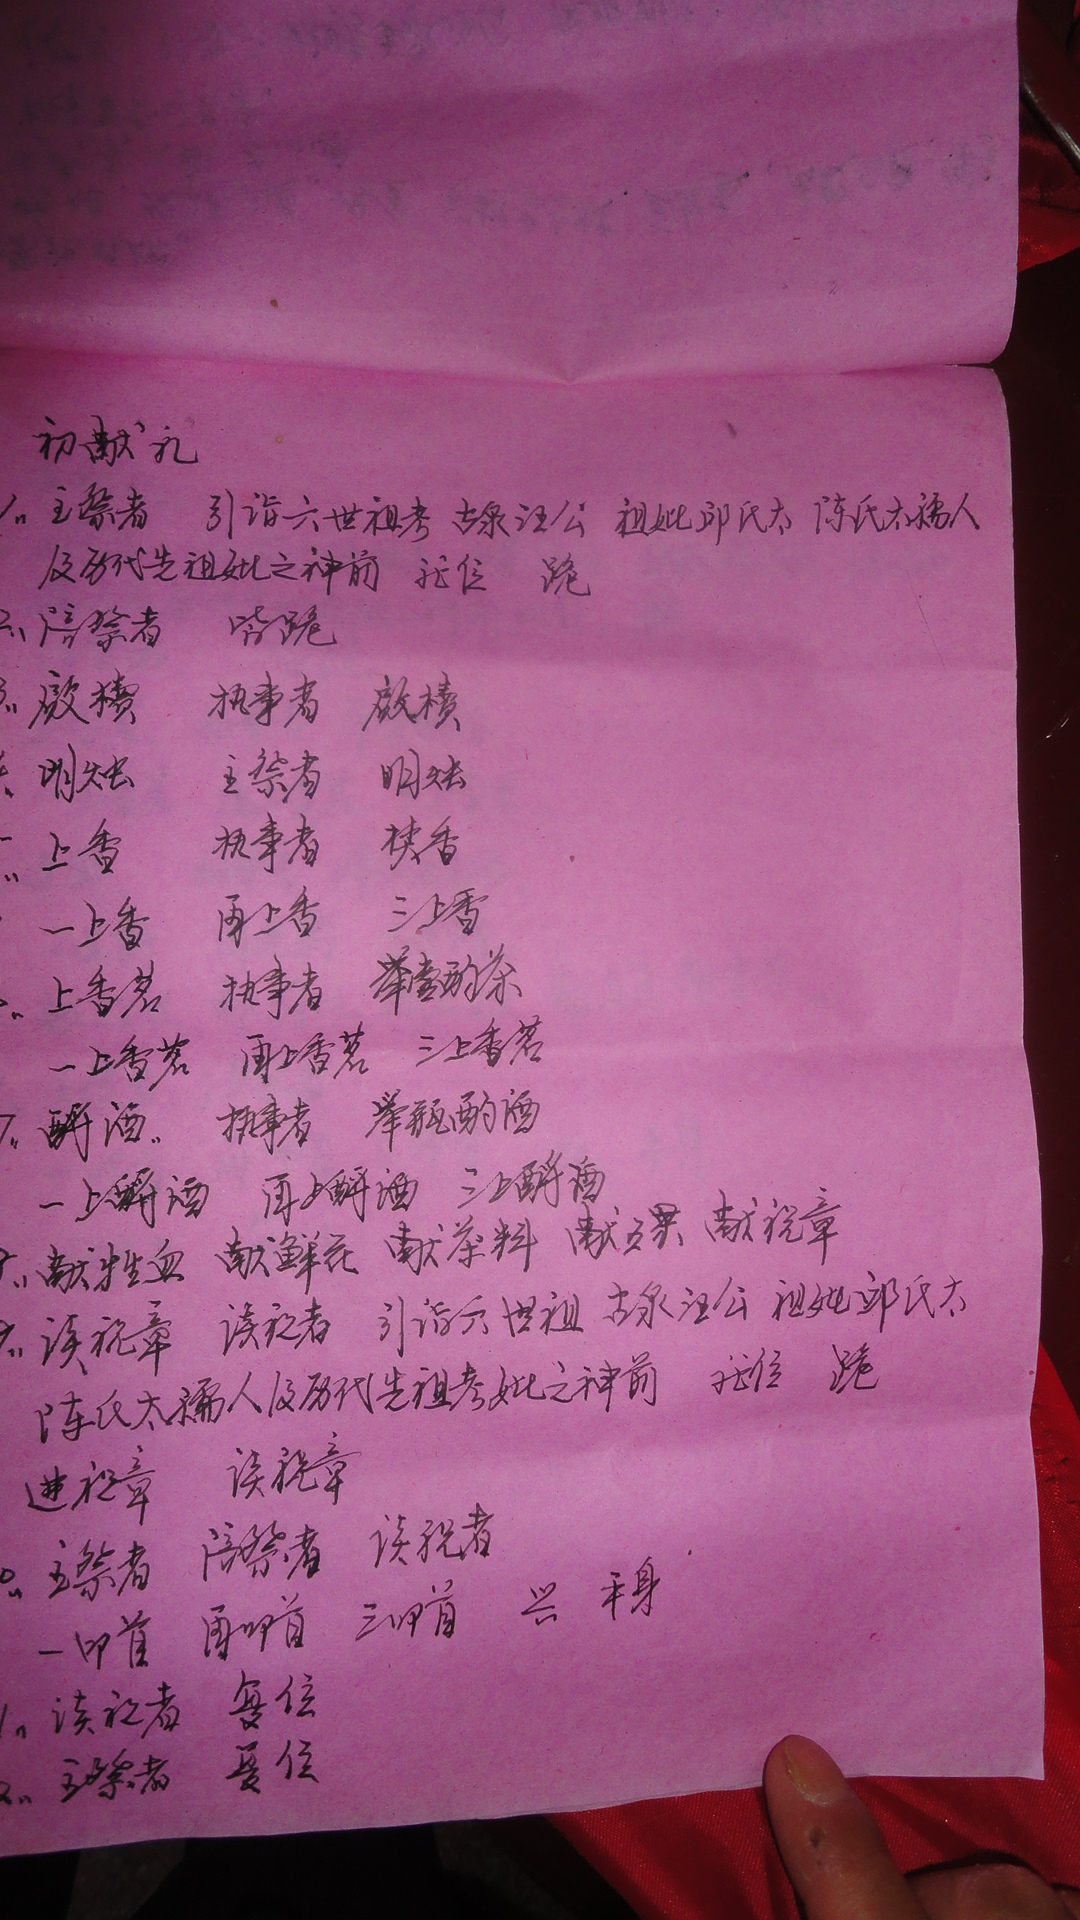 初献礼
1、主祭者 引诣六世祖考 古泉汪公 祖妣邱氏太 陈氏太孺人
及历代先祖妣之神前 就位 跪
陪祭者 皆跪
启椟 执事者 启椟
明烛 主祭者 明烛
上香 执事者 传香
一上香 再上香 三上香
上香茗 执事者 举壶酌茶
一上香茗 再上香茗 三上香茗
7、酹酒 执事者 举瓶酌酒
一上酹酒 再上酹酒 三上酹酒
献牲血 献鲜花 献茶料 献 果 献祝章
读祝章 读祝者 引诣六世祖 古泉汪公 祖妣邱氏太
陈氏太孺人及历代先祖考妣之神前 就位 跪
进祝章 读祝章
主祭者 陪祭者 读祝者
一叩首 再叩首 三叩首 兴 平身
读祝者 复位
主祭者 复位